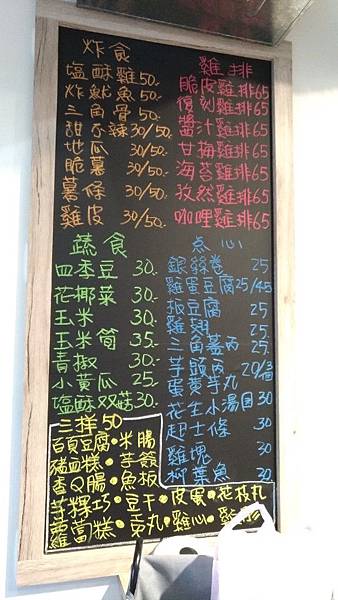 炸食
塩酥雞50.
炸魷魚50.
三角骨50.
甜不辣30/50.
地瓜 30/50.
脆薯 30/50.
薯條 30/50.
雞皮 30/50.
雞排
脆皮雞排65
復刻雞排65
醬汁雞排65
甘梅雞排65
海苔雞排65
孜然雞排65
咖哩雞排65
蔬食
四季豆 30.
花椰菜 30.
玉米 30.
玉米筍 35.
青椒 30.
小黃瓜 25.
塩酥双菇30
点心
銀絲卷 25
雞蛋豆腐25/45
板豆腐 25.
雞翅 25.
三角蓋丙 25.
芋頭丙 20/3個
蛋黃芋丸
花生小湯圓30
起士條 30
雞塊 30
柳葉魚 30.
三樣50
百頁豆腐•米腸
豬血糕•芋簽
香Q腸•魚板
芋粿巧•豆干•皮蛋•花枝丸
蘿蔔糕•貢丸•雞心•雞胗